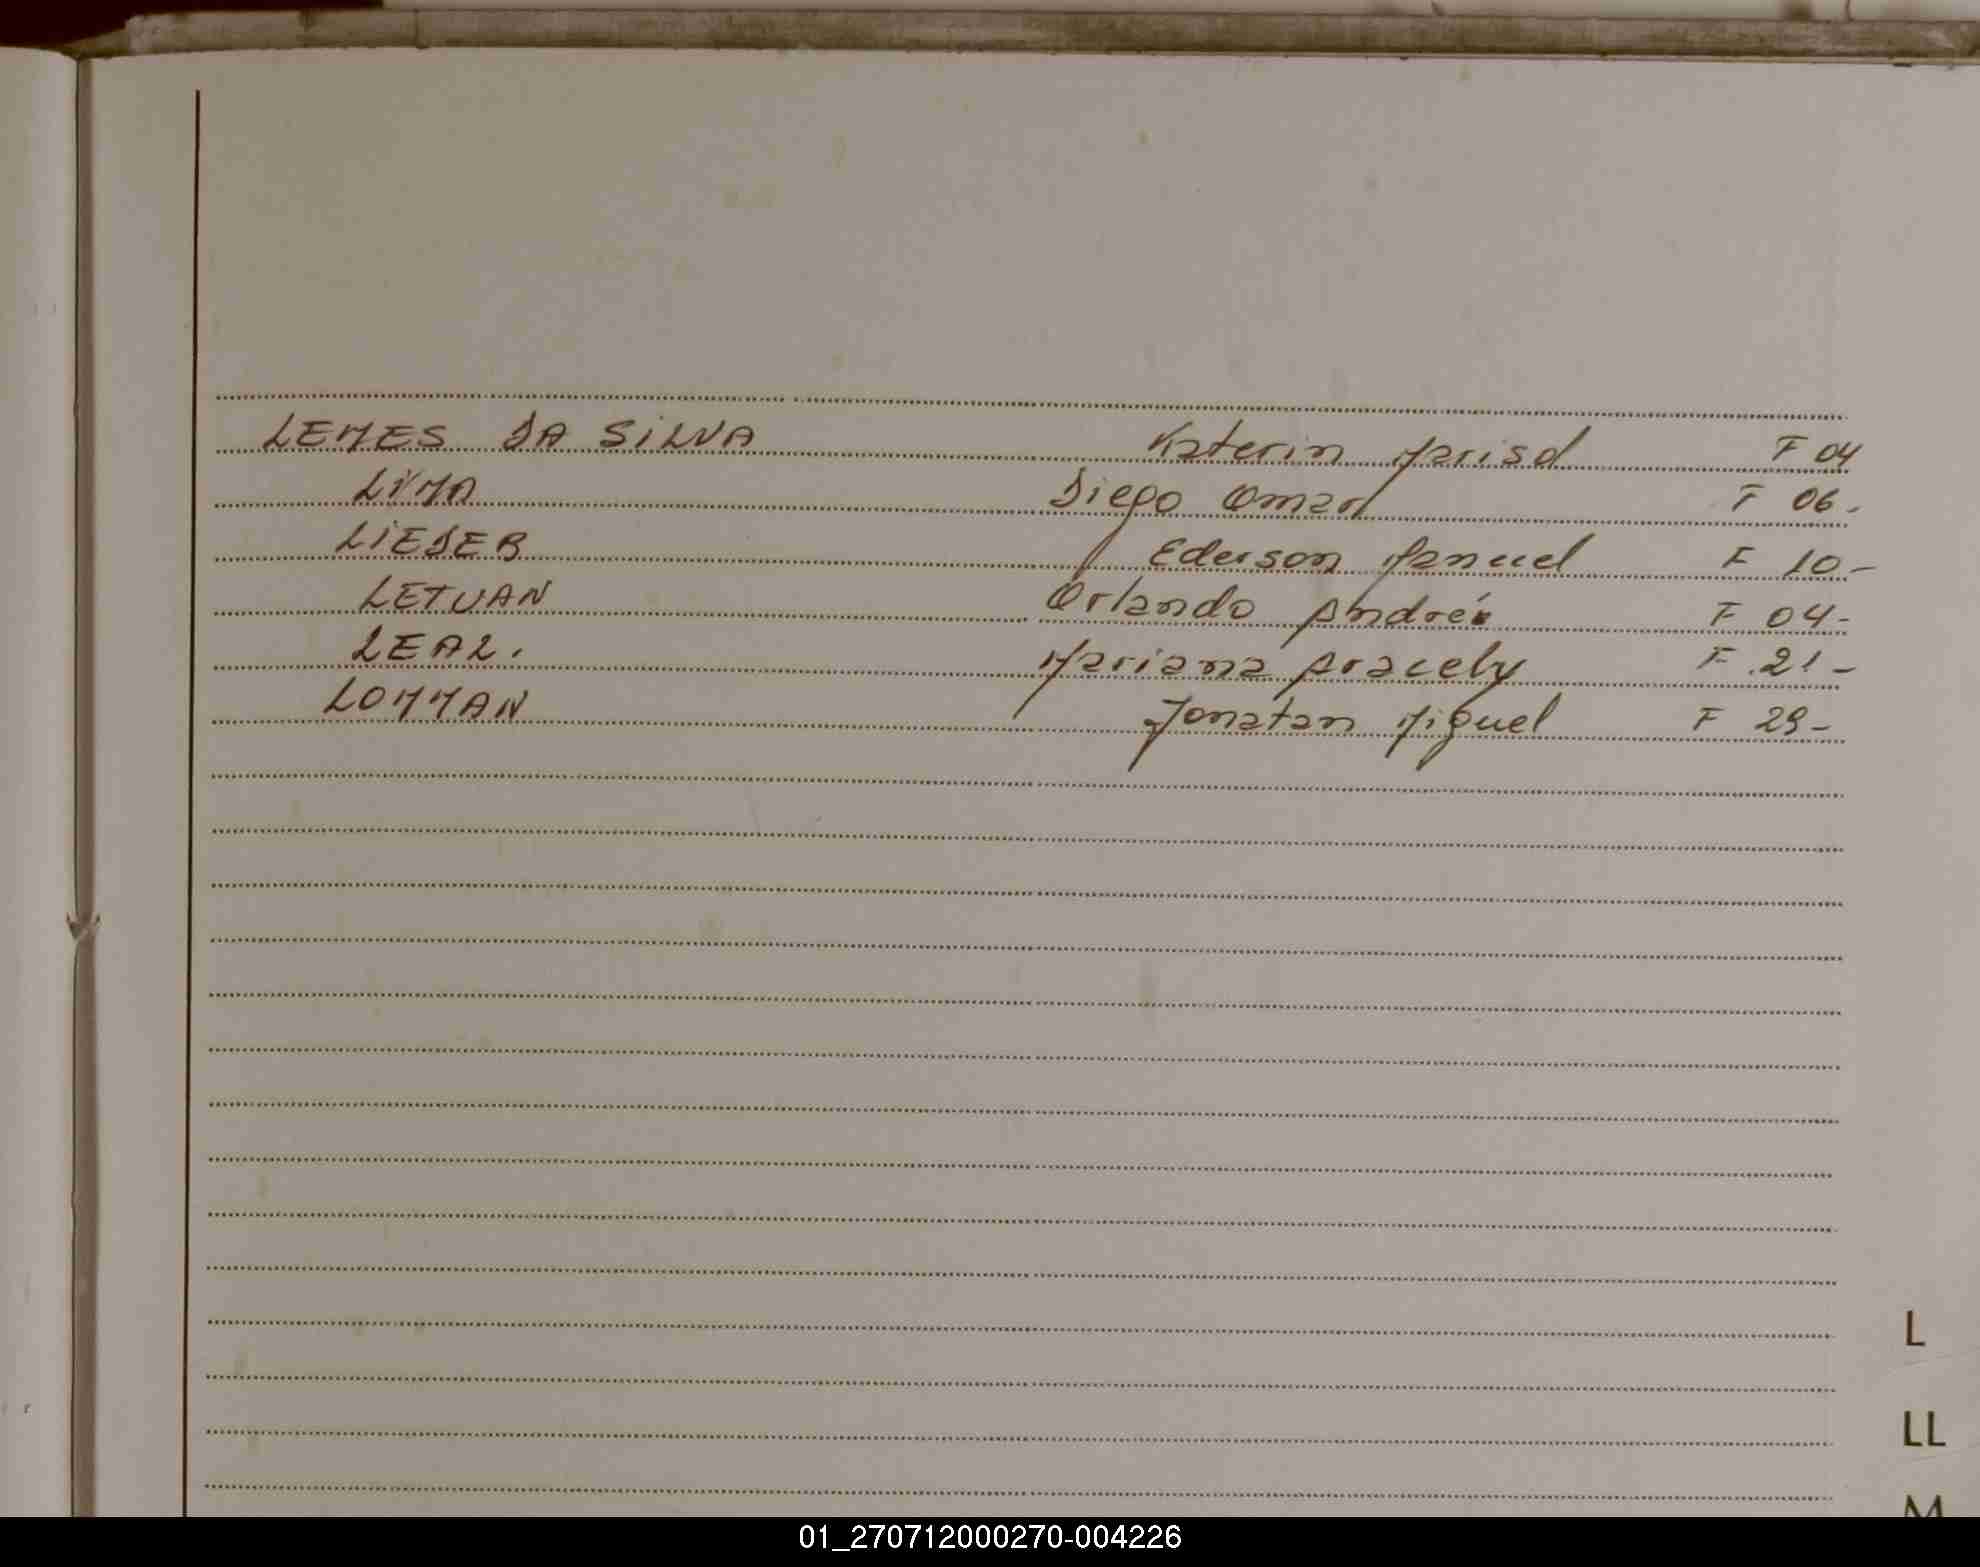 LEMES DA SILVA Katerin Marisol F 04
LIMA Diego Omar F 06-
LIEDER Ederson Manuel F 10-
LETUAN Orlando André F 04-
LEAL. Mariana Aracely F 21-
LOMMAN Jonatan Miguel F 29-
L
LL
M
01_270712000270-004226